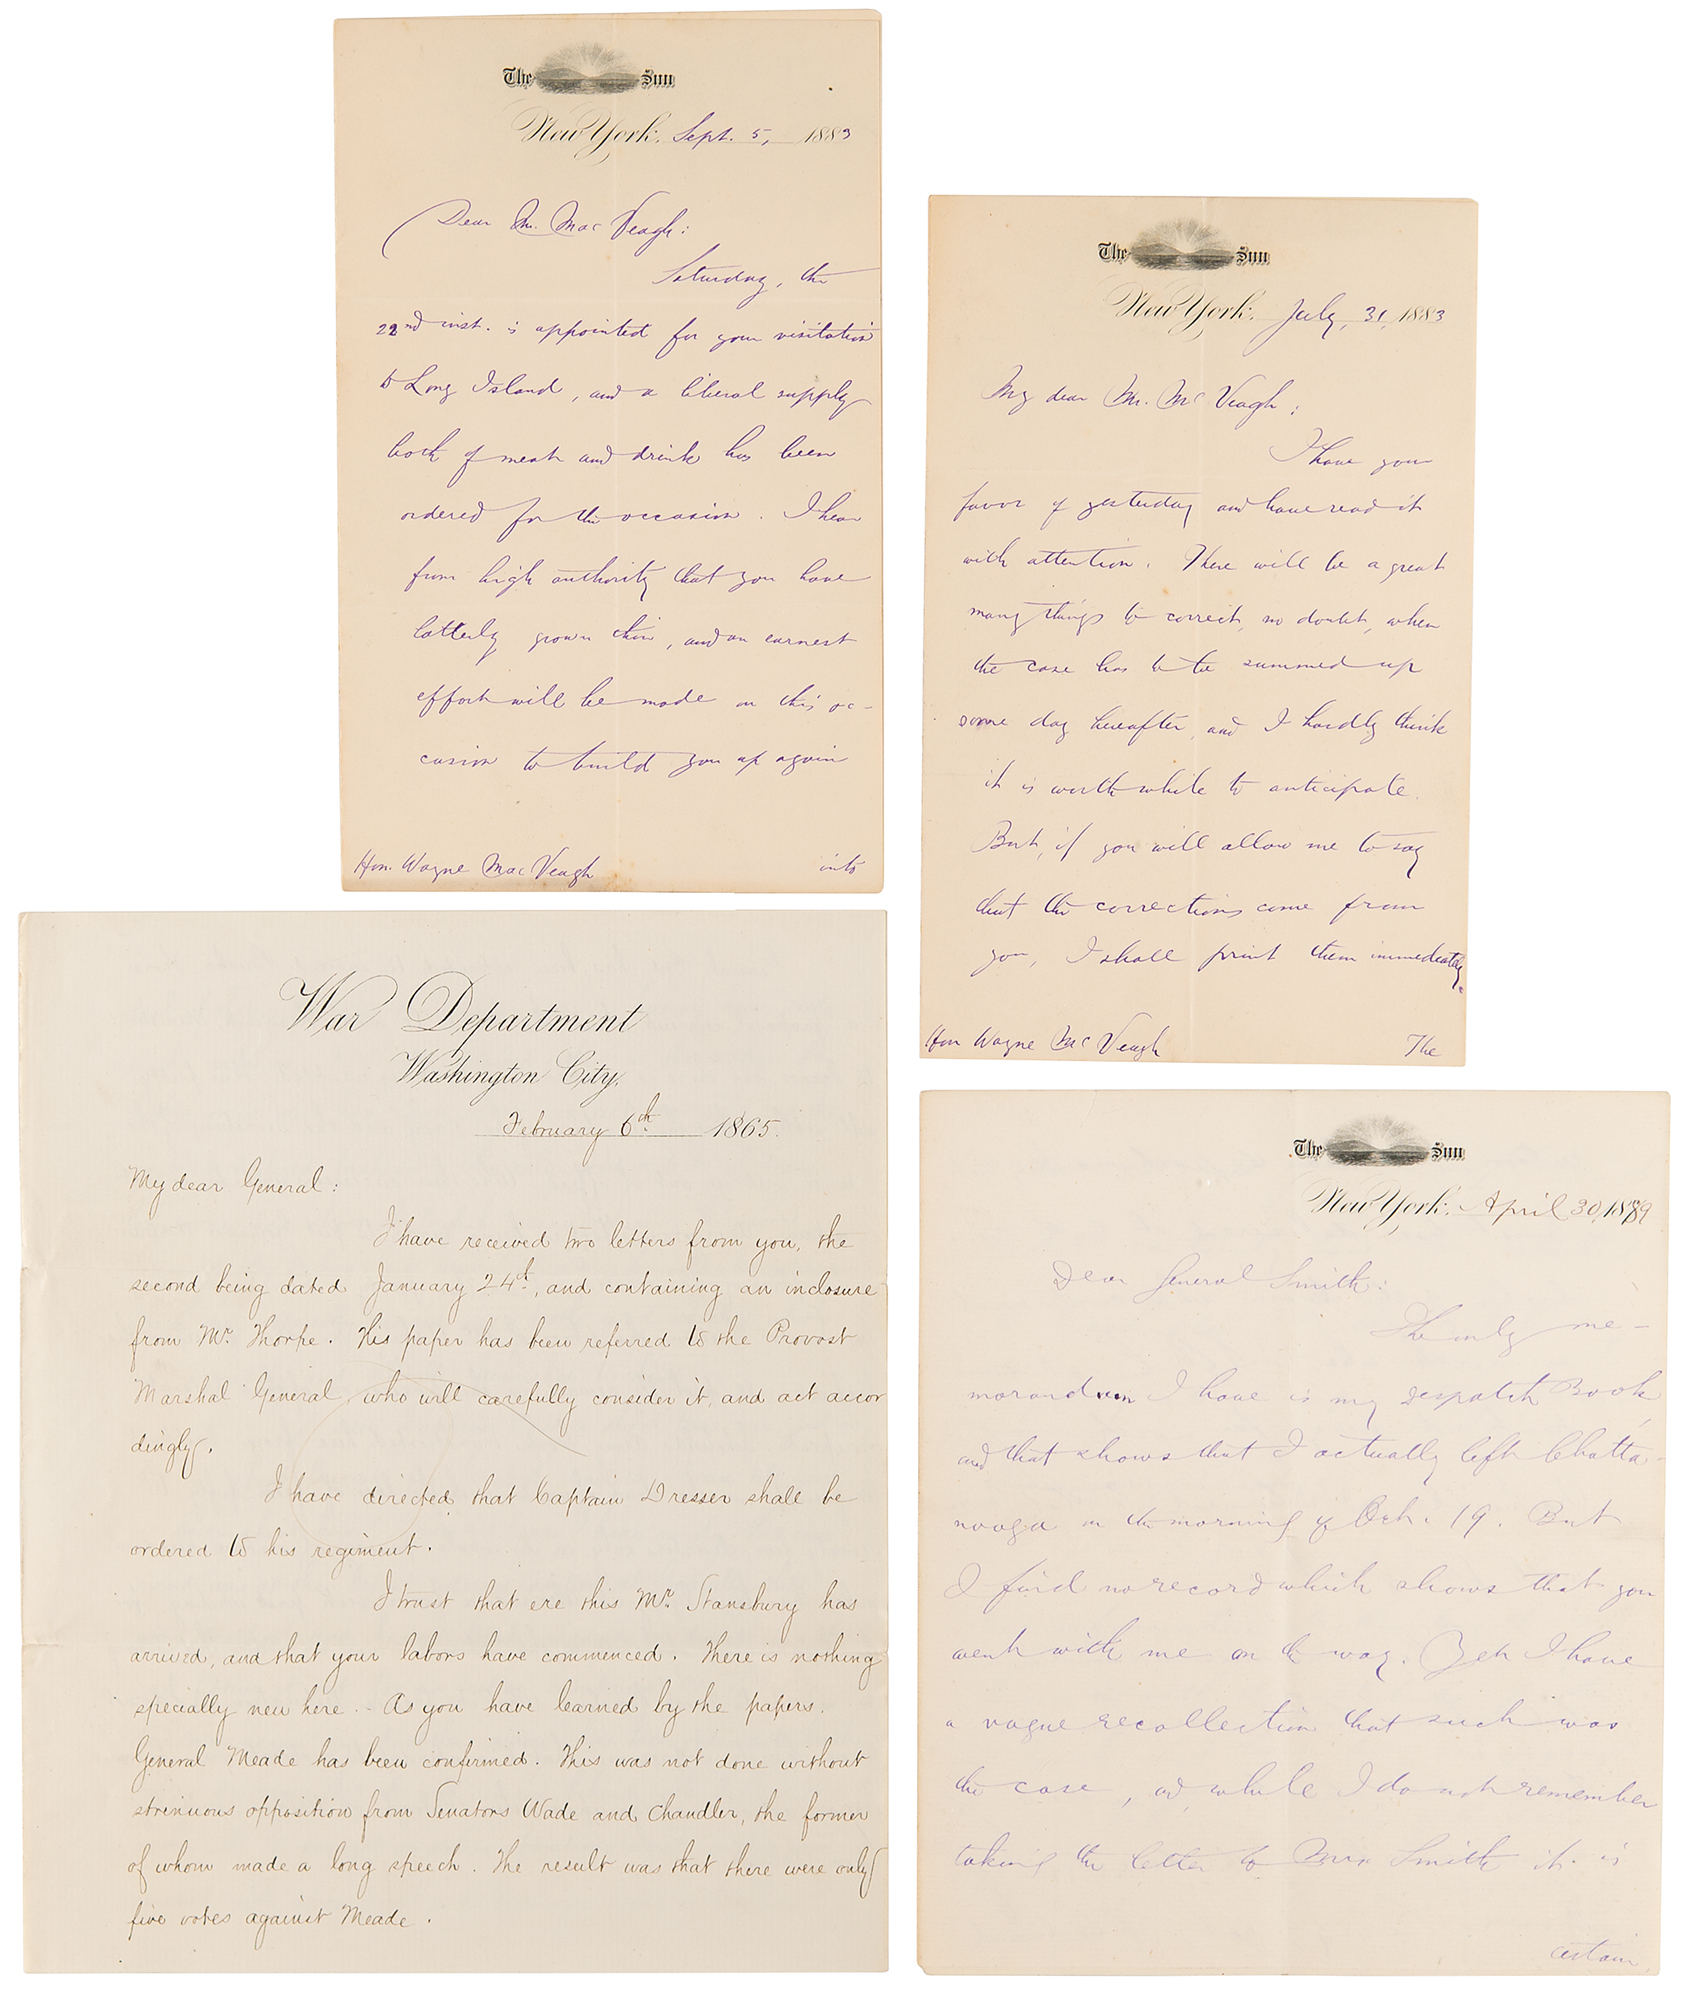 The Sun
New York, Sept. 5, 1883
Dear Mr. Mac Veagh:
Saturday, the
22nd inst. is appointed for your visitation
to Long Island, and a liberal supply
both of meat and drink has been
ordered for the occasion. I hear
from high authority that you have
latterly grown thin, and an earnest
effort will be made on this oc-
casion to build you up again
Hon. Wayne Mac Veagh
into
The Sun
New York, July, 31, 1883
My dear Mr. Mc Veagh:
I have your
favor of yesterday and have read it
with attention. There will be a great
many things to correct, no doubt, when
the case has to be summed up
some day hereafter, and I hardly think
it is worth while to anticipate.
But, if you will allow me to say
that the corrections come from
you, I shall print them immediately.
Hon Wayne Mc Veagh
The
War Department
Washington City,
February 6th 1865.
My dear General:
I have received two letters from you, the
second being dated January 24th, and containing an inclosure
from Mr. Thorpe. His paper has been referred to the Provost
Marshal General, who will carefully consider it, and act accor
dingly.
I have directed that Captain Dresser shall be
ordered to his regiment.
I trust that ere this Mr. Stansbury has
arrived, and that your labors have commenced. There is nothing
specially new here. - As you have learned by the papers.
General Meade has been confirmed. This was not done without
strenuous opposition from Senators Wade and Chandler, the former
of whom made a long speech. The result was that there were only
five votes against Meade.
The Sun
New York, April 30, 1889
Dear General Smith:
The only me-
morandum I have is my Despatch Book,
and that shows that I actually left Chatta-
nooga on the morning of Oct. 19. But
I find no record which shows that you
went with me on the way. Yet I have
a vague recollection that such was
the case, and, while I do not remember
taking the letter to Mrs Smith it is
certain